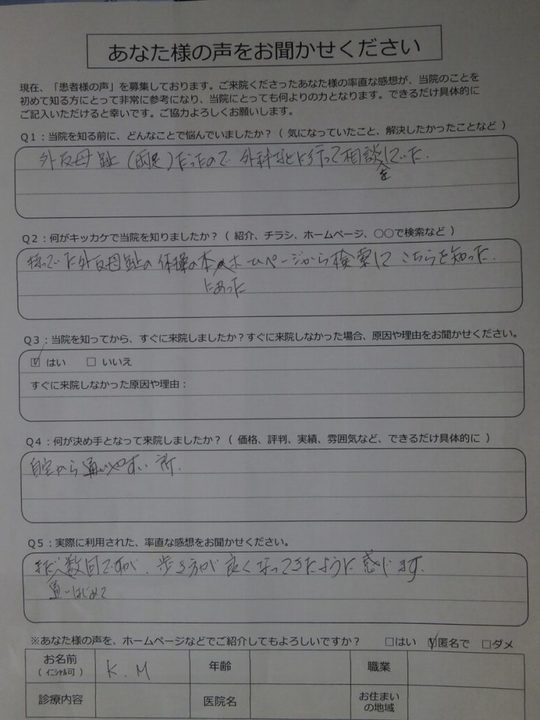 あなた様の声をお聞かせください
現在、「患者様の声」を募集しております。ご来院くださったあなた様の率直な感想が、当院のことを
初めて知る方にとって非常に参考になり、当院にとっても何よりの力となります。できるだけ具体的に
ご記入いただけると幸いです。ご協力よろしくお願いします。
Q1：当院を知る前に、どんなことで悩んでいましたか？（ 気になっていたこと、解決したかったことなど ）
外反母趾（両足）だったので 外科などに行って相談をしていた.
Q2：何がキッカケで当院を知りましたか？（ 紹介、チラシ、ホームページ、○○で検索など ）
持っていた外反母趾の体操の本にあったホームページから検索して こちらを知った.
Q3：当院を知ってから、すぐに来院しましたか？すぐに来院しなかった場合、原因や理由をお聞かせください。
☑ はい　□ いいえ
すぐに来院しなかった原因や理由：
Q4：何が決め手となって来院しましたか？（ 価格、評判、実績、雰囲気など、できるだけ具体的に ）
自宅から通いやすい所.
Q5：実際に利用された、率直な感想をお聞かせください。
まだ通いはじめて数回ですが、歩き方が良くなってきたように感じます.
※あなた様の声を、ホームページなどでご紹介してもよろしいですか？　□はい　☑匿名で　□ダメ
お名前 K.M 年齢 職業
（イニシャル可）
診療内容 医院名 お住まい
の地域